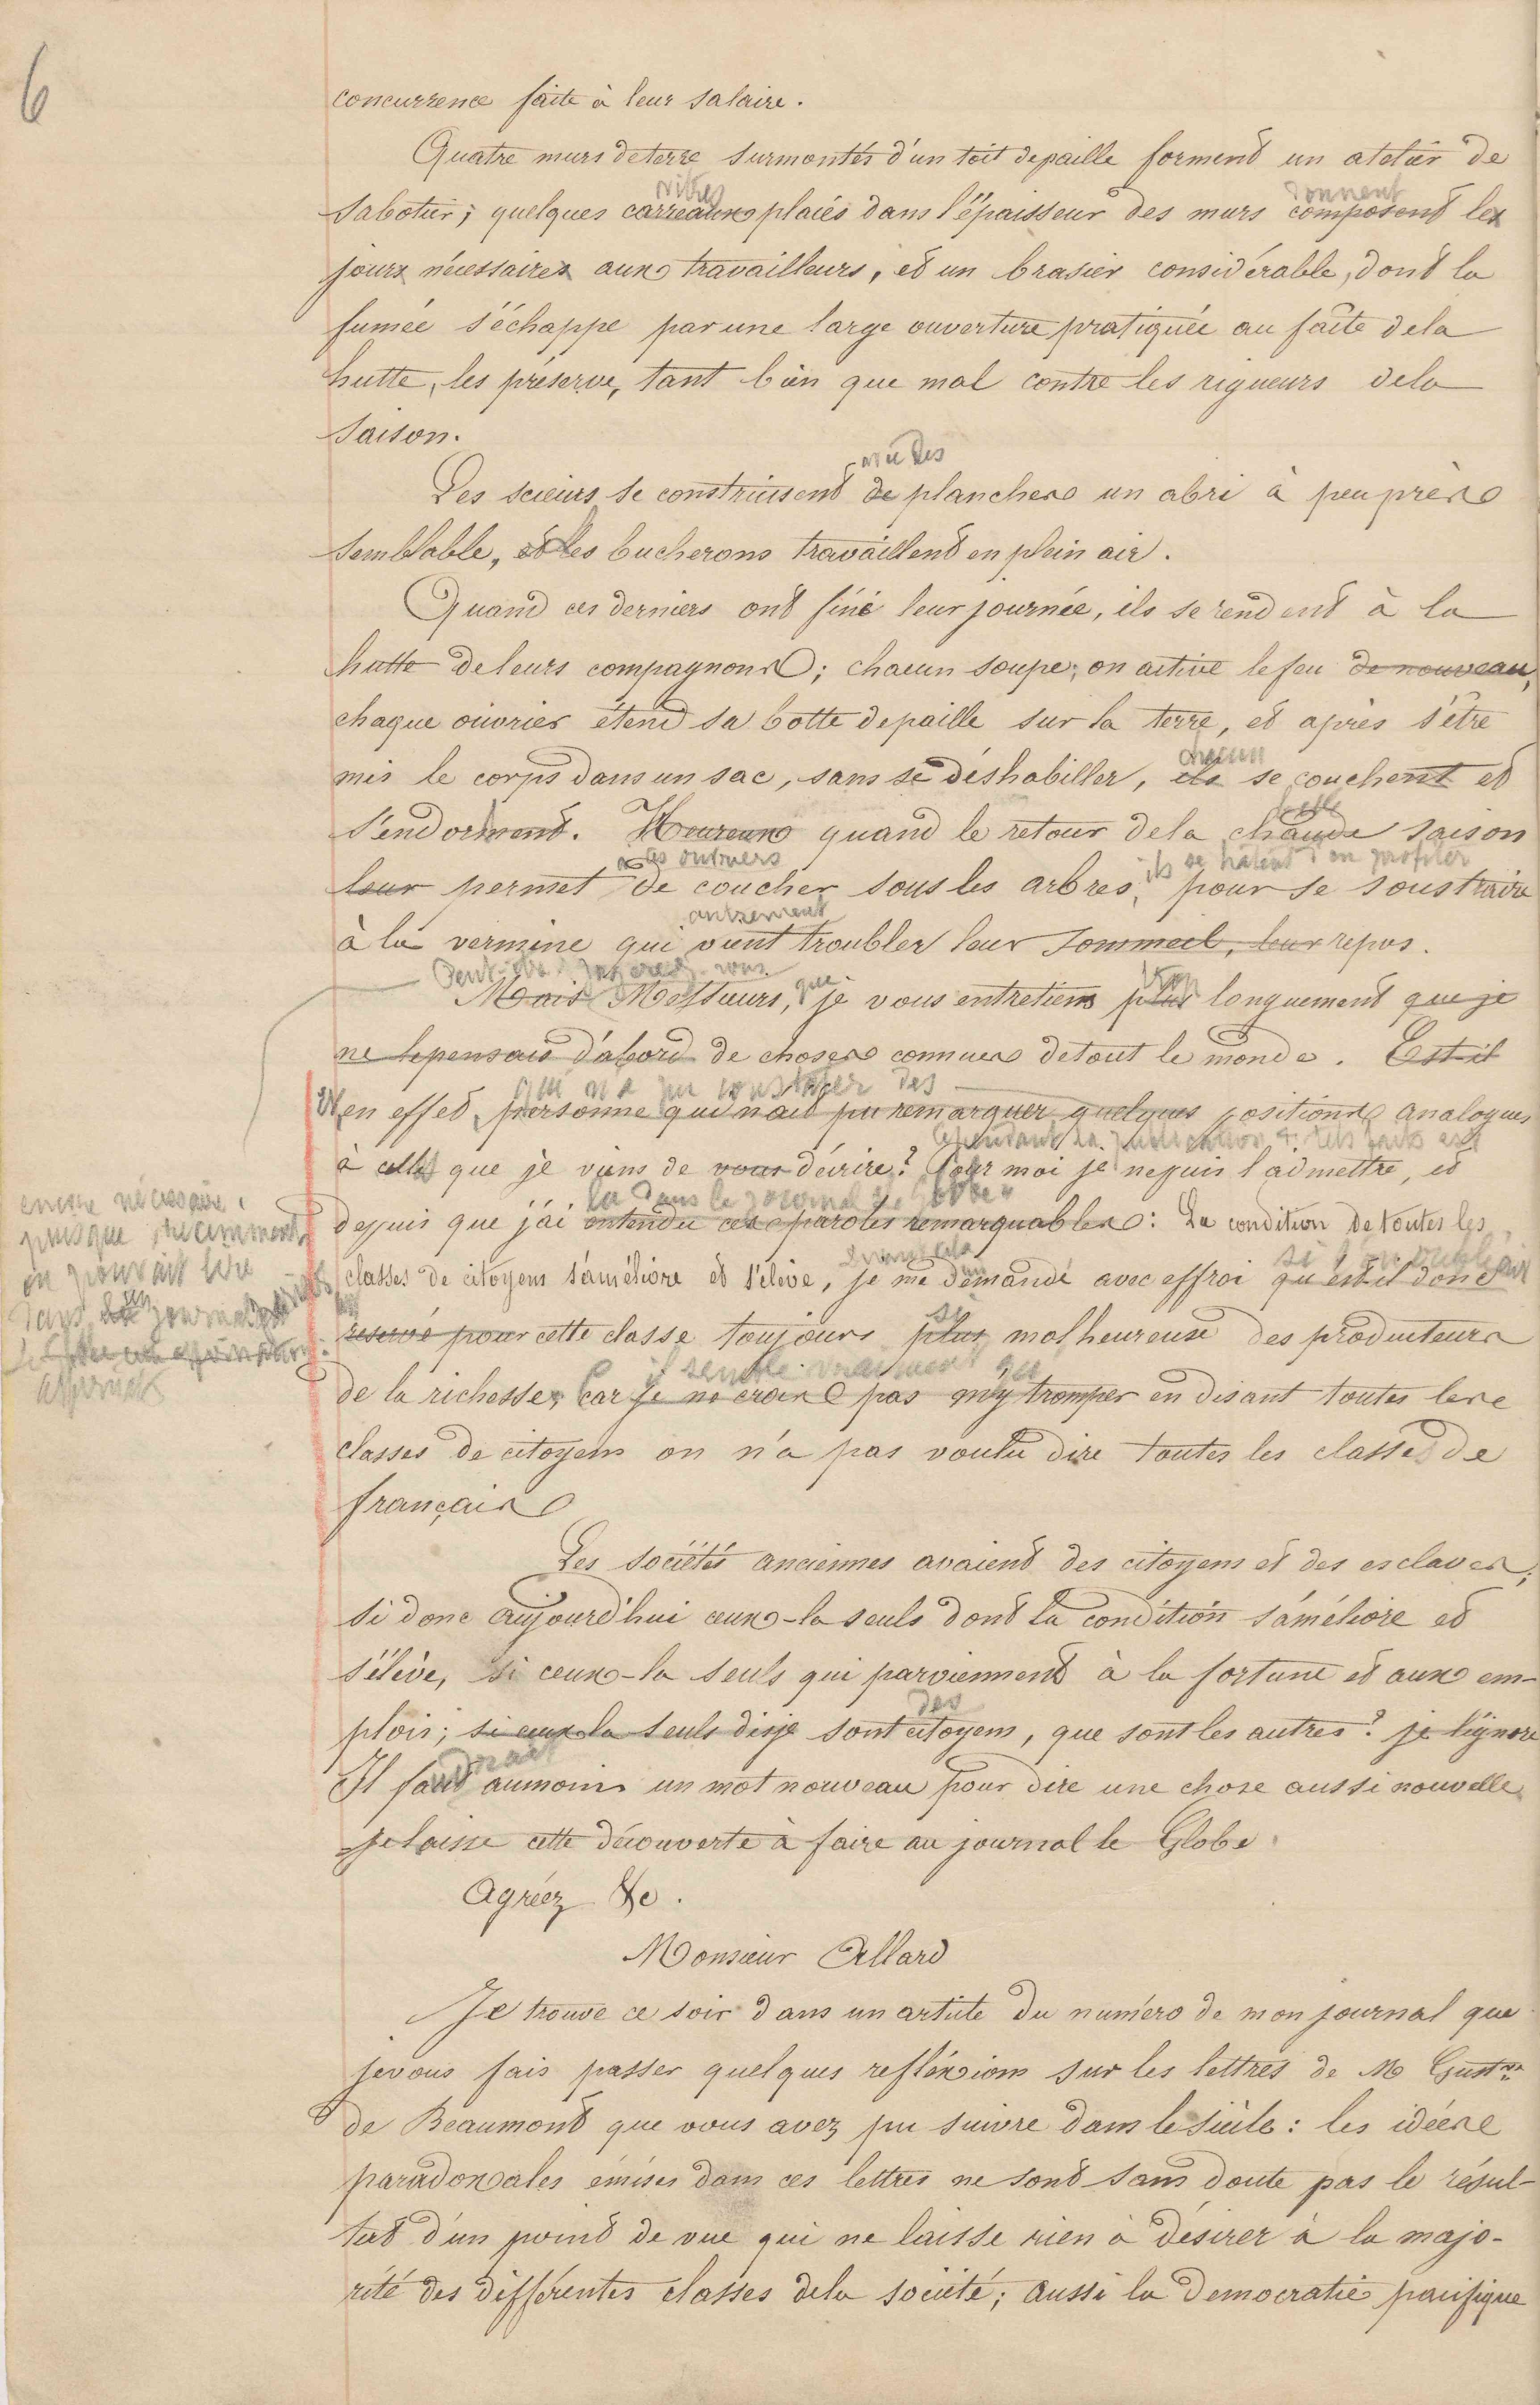 6
concurrence faite à leur salaire.
Quatre murs de terre surmontés d'un toit de paille forment un atelier de
vitres donnent
sabotier; quelques carreaux placés dans l'épaisseur des murs composent les
jours nécessaires aux travailleurs, et un brasier considérable, dont la
fumée s'échappe par une large ouverture pratiquée au faîte de la
hutte, les préserve, tant bien que mal contre les rigueurs de la
saison.
avec des
Les scieurs se construisent de planches un abri à peu près
semblable, et les bucherons travaillent en plein air.
Quand ces derniers ont fini leur journée, ils se rendent à la
hutte de leurs compagnons; chacun soupe; on active le feu de nouveau,
chaque ouvrier étend sa botte de paille sur la terre, et après s'être
chacun
mis le corps dans un sac, sans se déshabiller, ils se couchent et
belle
s'endorment. Heureux quand le retour de la chaude saison
à ces ouvriers ils se hâtent d'en profiter
leur permet de coucher sous les arbres, pour se soustraire
autrement
à la vermine qui vient troubler leur sommeil, leur repos.
Peut-être jugerez-vous
que trop
Mais Messieurs, je vous entretiens plus longuement que je
ne le pensais d'abord de choses connues de tout le monde. Est-il
qui n'a pu constater des
en effet, personne qui n'ait pu remarquer quelques positions analogues
Cependant la publication de tels faits est
à celle que je viens de vous décrire? Pour moi je ne puis l'admettre, et
encore nécessaire,
puisque récemment
on pouvait lire
dans journal
lu dans le journal le Globe
depuis que j'ai entendu ces paroles remarquables: La condition de toutes les
classes de citoyens s'améliore et s'élève, je me demande avec effroi qu'est-il donc
si
réservé pour cette classe toujours plus malheureuse des producteurs
il semble vraiment que
de la richesse, car je ne crois pas m'y tromper en disant toutes les
classes de citoyens on n'a pas voulu dire toutes les classes de
français
Les sociétés anciennes avaient des citoyens et des esclaves;
si donc aujourd'hui ceux-la seuls dont la condition s'améliore et
s'élève, si ceux-la seuls qui parviennent à la fortune et aux em-
des
plois; si ceux-la seuls dis-je sont citoyens, que sont les autres? je l'ignore
Il faut aumoins un mot nouveau pour dire une chose aussi nouvelle
je laisse cette découverte à faire au journal le Globe.
Agréez &c.
Monsieur Allard
Je trouve ce soir dans un article du numéro de mon journal que
je vous fais passer quelques refléxions sur les lettres de M Gustve
de Beaumont que vous avez pu suivre dans le siècle: les idées
paradoxales émises dans ces lettres ne sont sans doute pas le résul-
tat d'un point de vue qui ne laisse rien à désirer à la majo-
rité des différentes classes de la société; aussi la Démocratie pacifique